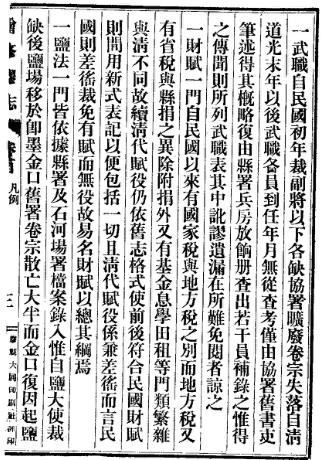 一武職自民國初年裁副將以下各缺協署曠廢卷宗失落自清
道光末年以後武職各員到任年月無從查考僅由協署舊書吏
筆述得其概略復由縣署兵房放餉册查出若干員補錄之惟得
之傳聞則所列武職表其中訛謬遺漏在所難免閱者諒之
一財賦一門自民國以來有國家稅與地方稅之別而地方稅又
有省稅與縣捐之異除附捐外又有基金息學田租等門類繁雜
與清不同故續清代賦役仍依舊志格式使前後符合民國財賦
則間用新式表記以便包括一切且清代賦役係兼差徭而言民
國則差徭裁免有賦而無役故易名財賦以總其綱焉
一鹽法一門皆依據縣署及石河場署檔案錄入惟自鹽大使裁
缺後鹽場移於卽墨金口舊署卷宗散亡大半而金口復因起鹽
志
凡例
膠縣大同印刷社新印